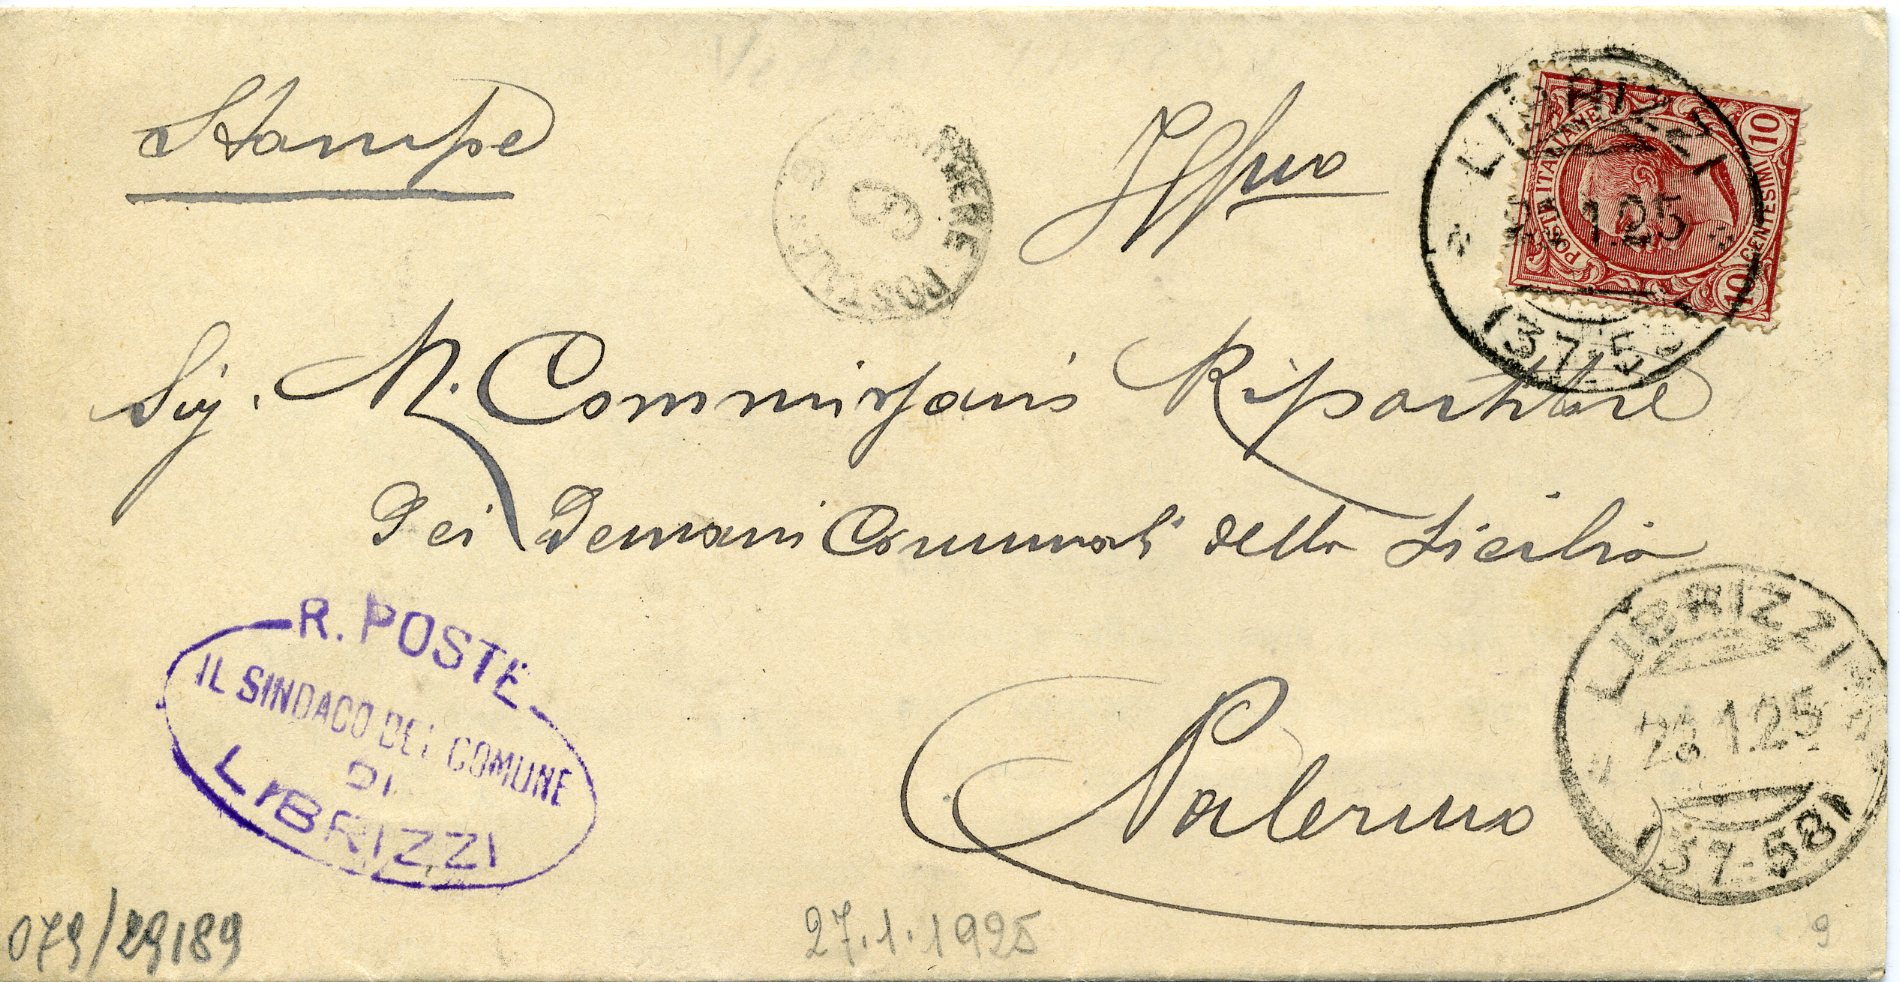 Stampe
Illmo
Sig. R. Commissario Ripartitore
dei Demani Comunali della Sicilia
Palermo
LIBRIZZI
1.25
(37-58)
POSTE ITALIANE
10 CENTESIMI 10
PORTALETTERE POSTALE
6
R. POSTE
IL SINDACO DEL COMUNE
DI
LIBRIZZI
LIBRIZZI
28.1.25
(37-58)
079/29189
27.1.1925
9